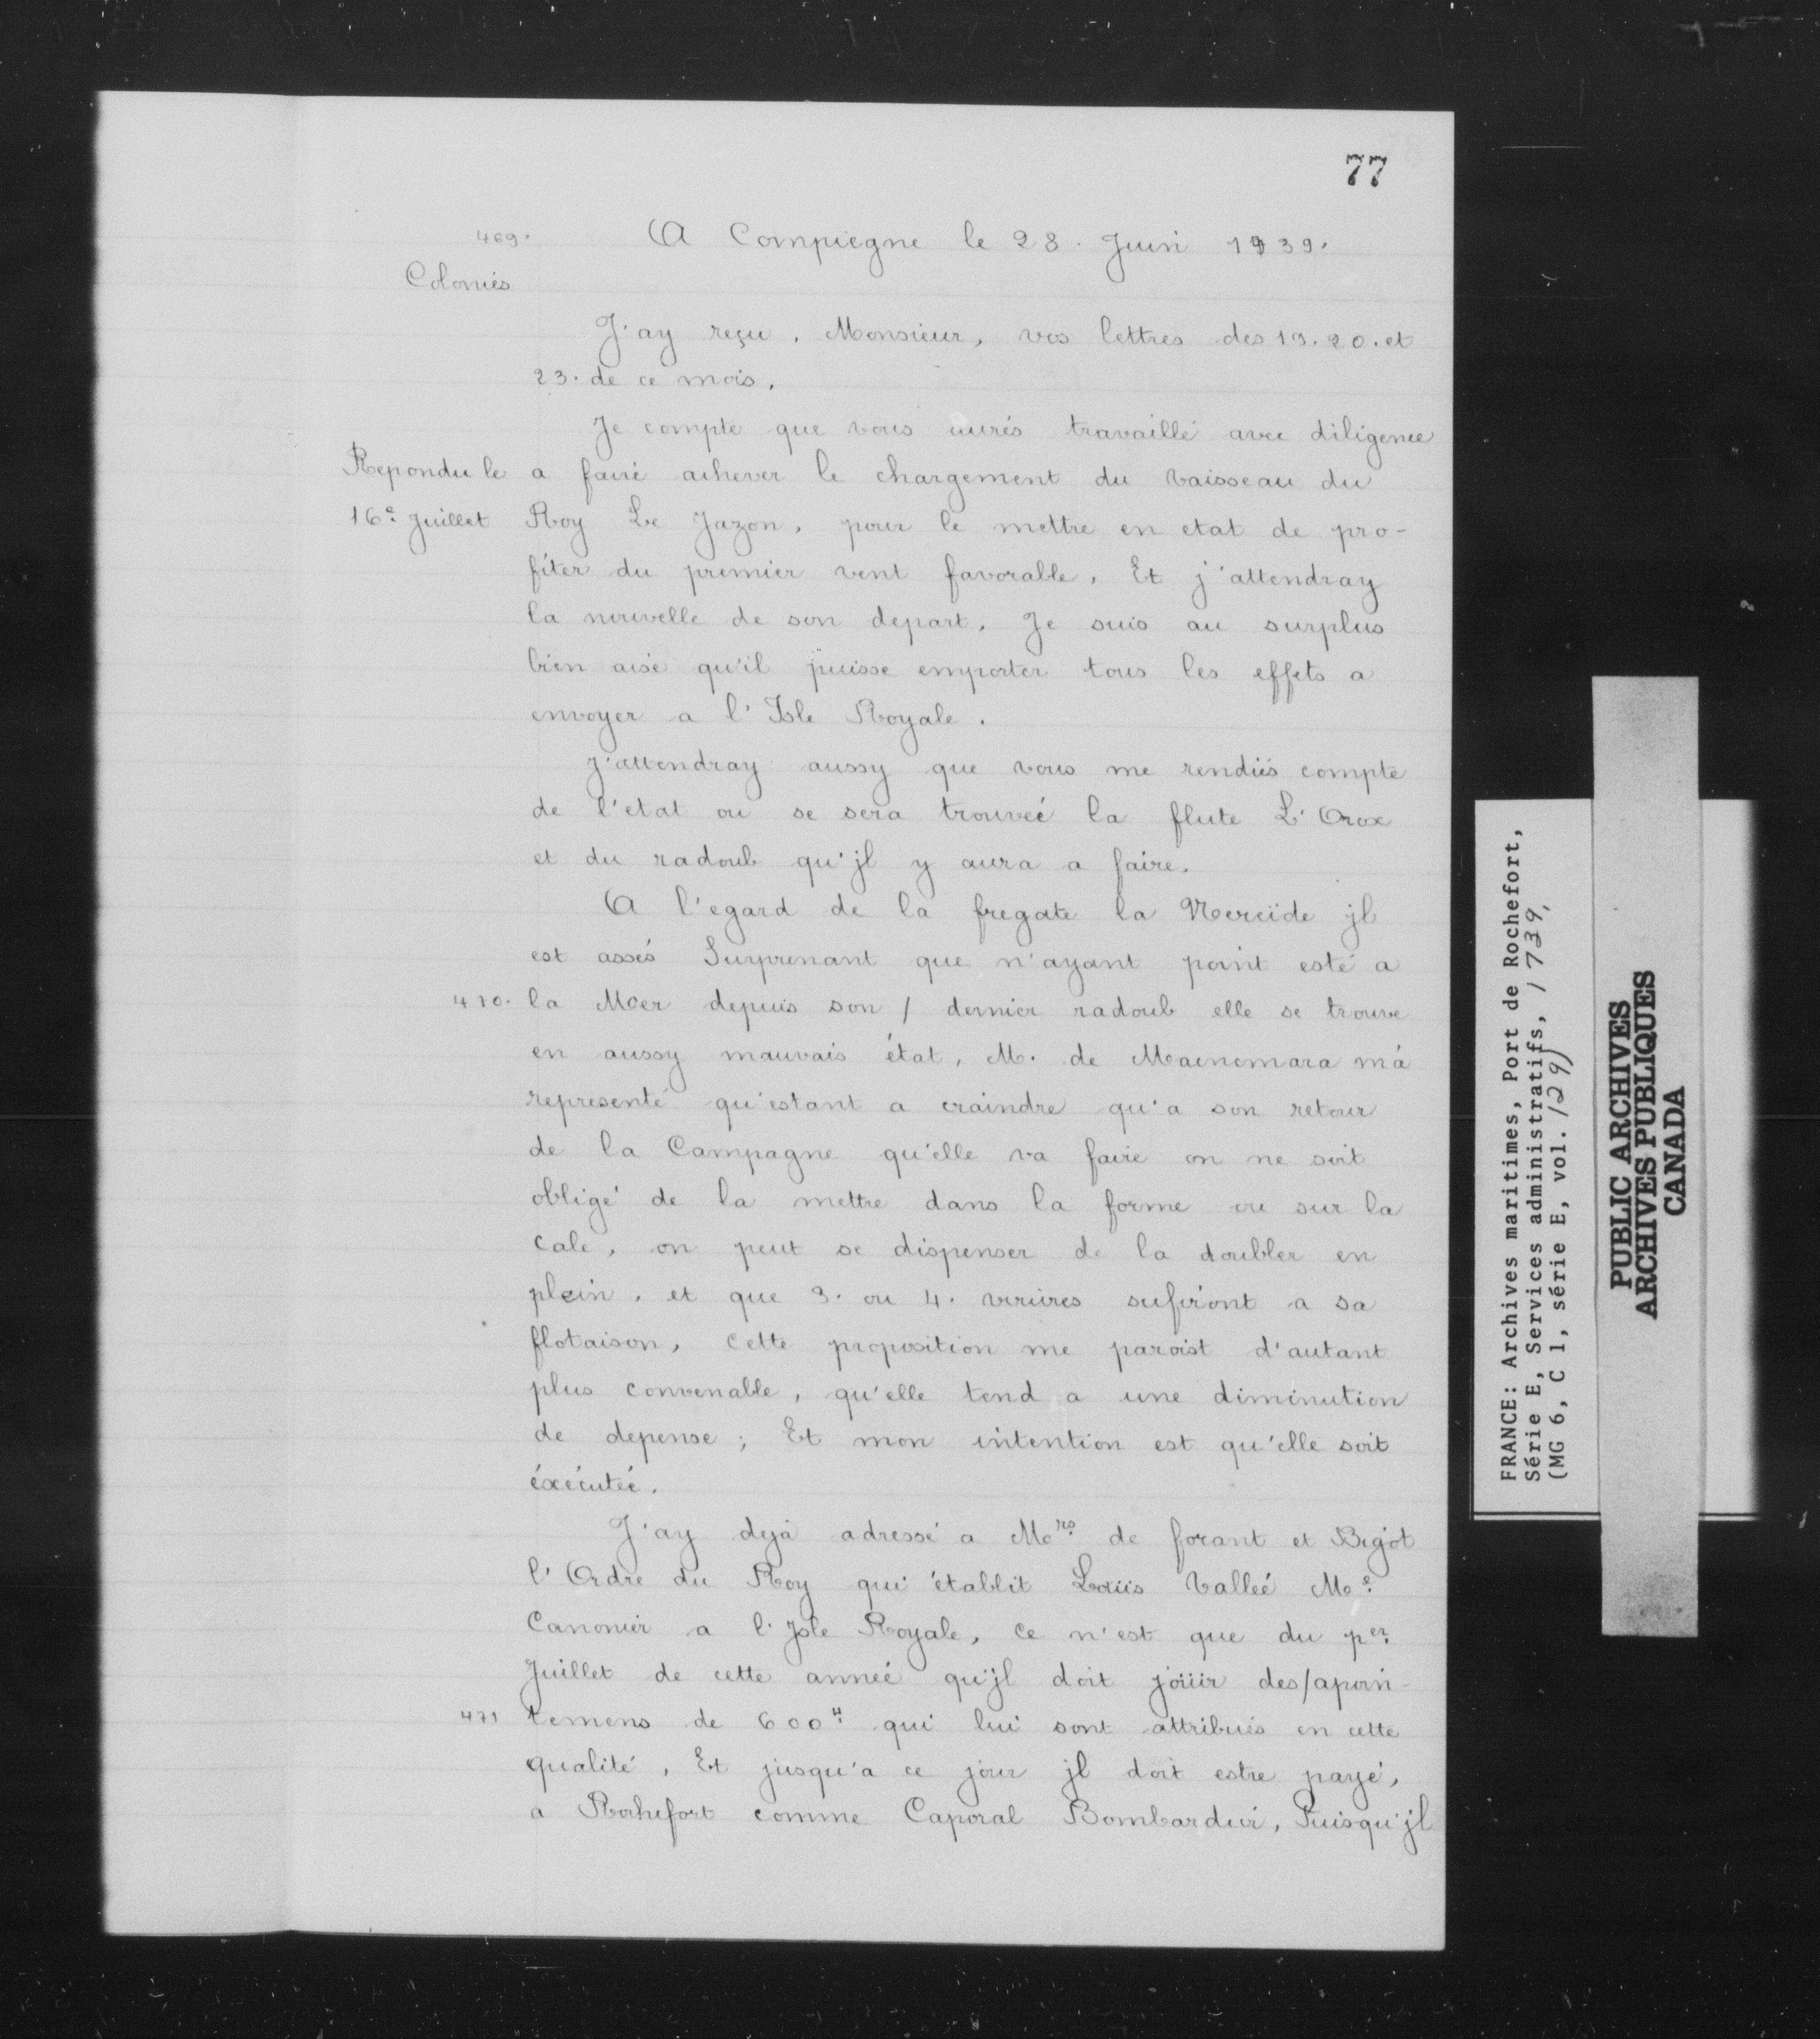 77
469. A Compiegne le 28. Juin 1739.
Colonies
J'ay reçu, Monsieur, vos lettres des 19. 20. et
23. de ce mois.
Je compte que vous aurés travaillé avec diligence
Repondu le a faire achever le chargement du vaisseau du
16e Juillet Roy Le Jazon, pour le mettre en etat de pro-
fiter du premier vent favorable, Et j'attendray
la nouvelle de son depart. Je suis au surplus
bien aise qu'il puisse emporter tous les effets a
envoyer a l'Isle Royale.
J'attendray aussy que vous me rendiés compte
de l'etat ou se sera trouveé la flute L'Orox
et du radoub qu'jl y aura a faire.
A l'egard de la fregate la Nereïde jl
est assés Surprenant que n'ayant point esté a
470. la Mer depuis son / dernier radoub elle se trouve
en aussy mauvais état, M. de Macnemara m'a
representé qu'estant a craindre qu'a son retour
de la Campagne qu'elle va faire on ne soit
obligé de la mettre dans la forme ou sur la
cale, on peut se dispenser de la doubler en
plein, et que 3. ou 4. virures sufiront a sa
flotaison, cette proposition me paroist d'autant
plus convenable, qu'elle tend a une diminution
de depense; Et mon intention est qu'elle soit
éxécutée.
J'ay dejà adressé a Mrs de forant et Bigot
l'Ordre du Roy qui établit Loüis Valleé Me
Canonier a l'Jsle Royale, Ce n'est que du per
Juillet de cette anneé qu'jl doit joüir des/apoin-
471 temens de 600# qui lui sont attribués en cette
qualité, Et jusqu'a ce jour jl doit estre payé,
a Rochefort comme Caporal Bombardier, Puisqu'jl
FRANCE: Archives maritimes, Port de Rochefort,
Série E, Services administratifs, 1739,
(MG 6, C 1, série E, vol. 129)
PUBLIC ARCHIVES
ARCHIVES PUBLIQUES
CANADA